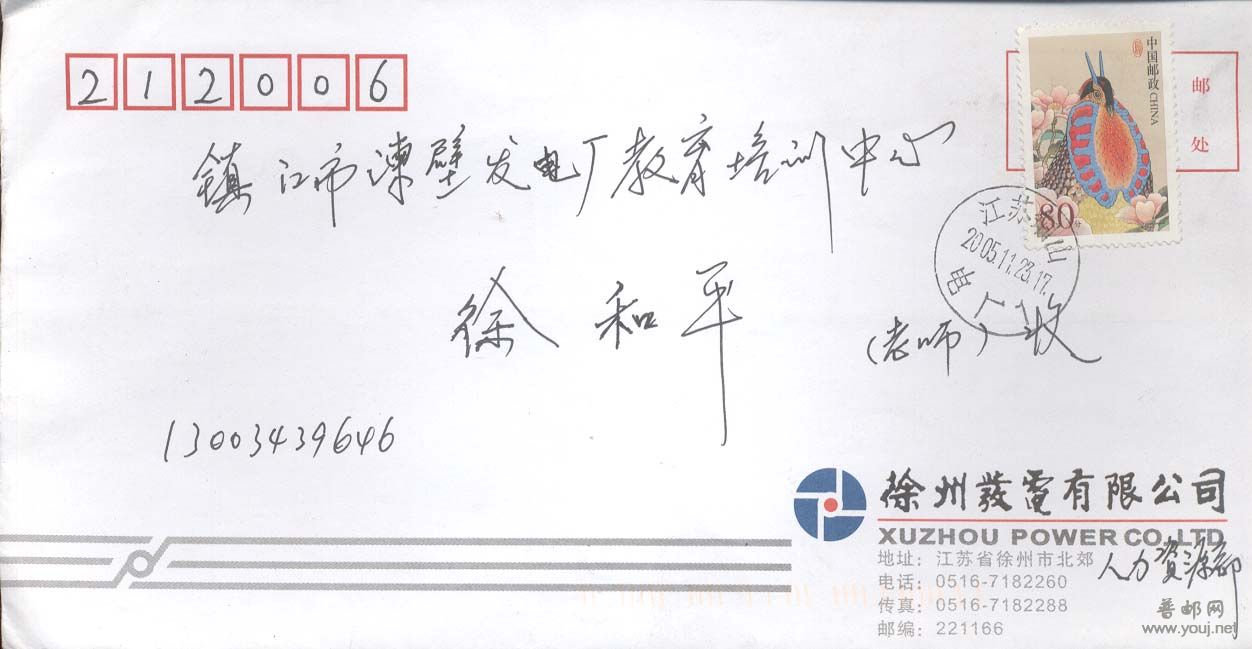 212006
中国邮政 CHINA
80分
邮
处
镇江市谏壁发电厂教育培训中心
江苏 山
2005.11.23.17.
电厂
徐和平
(老师)收
13003439646
徐州發電有限公司
XUZHOU POWER CO.,LTD
地址：江苏省徐州市北郊
人力资源部
电话：0516-7182260
传真：0516-7182288
邮编：221166
普邮网
www.youj.net